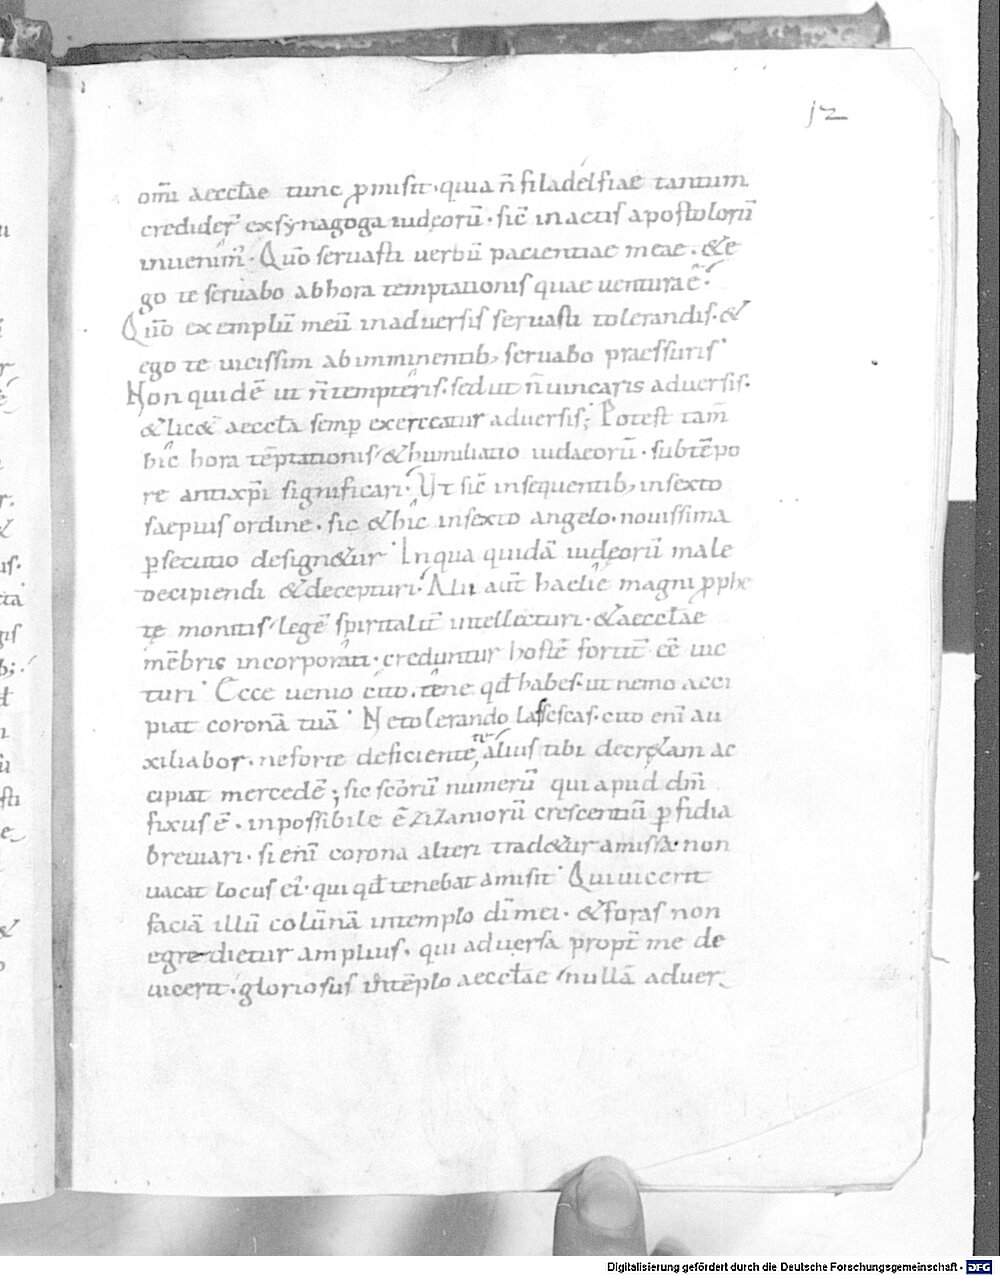 12
om̅i aeccl̅ae tunc ꝓmisit· quia n̅ filadelfiae tantum
credider̅ exsynagoga iudęorū· sic̅ inactis apostolorū
inuenim̅· Quō seruasti uerbū pacientiae meae· &e
go te seruabo abhora temptationis quae uentura ē·
Quō exemplū meū inaduersis seruasti tolerandis· &
ego te uicissim abimminentib; seruabo praessuris·
Non quidē ut n̅ tempteris· sed ut n̅ uincaris aduersis·
&lic& aeccl̅a semꝑ exerceatur aduersis; Potest tam̅
hic hora tēptationis &humiliatio iudaeorū· subtēpo
re antixp̅i significari· Ut sic̅ insequentib; insexto
saepius ordine· sic &hic insexto angelo· nouissima
ꝑsecutio design&ur· Inqua quidā iudęorū male
decipiendi &decepturi· Alii aut̅ haelie magni ꝓphe
tę monitis legē spiritalit̅ intellecturi· &aeccl̅ae
mēbris incorporati· creduntur hostē fortit̅ ēē uic
turi· Ecce uenio cito· tene qd̅ habes· ut nemo acci
piat coronā tuā· Ne tolerando lassescas· cito eni̅ au
xiliabor· ne forte deficiente te alius tibi decr&am ac
cipiat mercedē; sic sc̅orū numerū qui apud dm̅
fixus ē· inpossibile ē zizaniorū crescentiū ꝑfidia
breuiari· si eni̅ corona alteri trad&ur amissa· non
uacat locus ei· qui qd̅ tenebat amisit· Qui uicerit
faciā illū colūnā intemplo di̅ mei· &foras non
egredietur amplius· qui aduersa propt̅ me de
uicerit· gloriosus intēplo aeccl̅ae nullā aduer
Digitalisierung gefördert durch die Deutsche Forschungsgemeinschaft - DFG